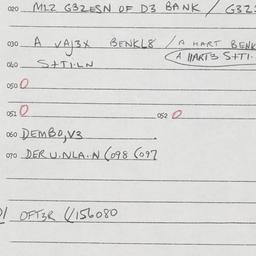 020 M12 G3ZESN OF D3 BANK / G3Z
030 A VAJ3X BENKL8 / A HART BENK
A HART3 S+TI
040 S+TI·LN
050 0
051 0 052 0
060 DEMBO,V3
070 DER U·NLA·N (098 (097
OFT3R (/156080